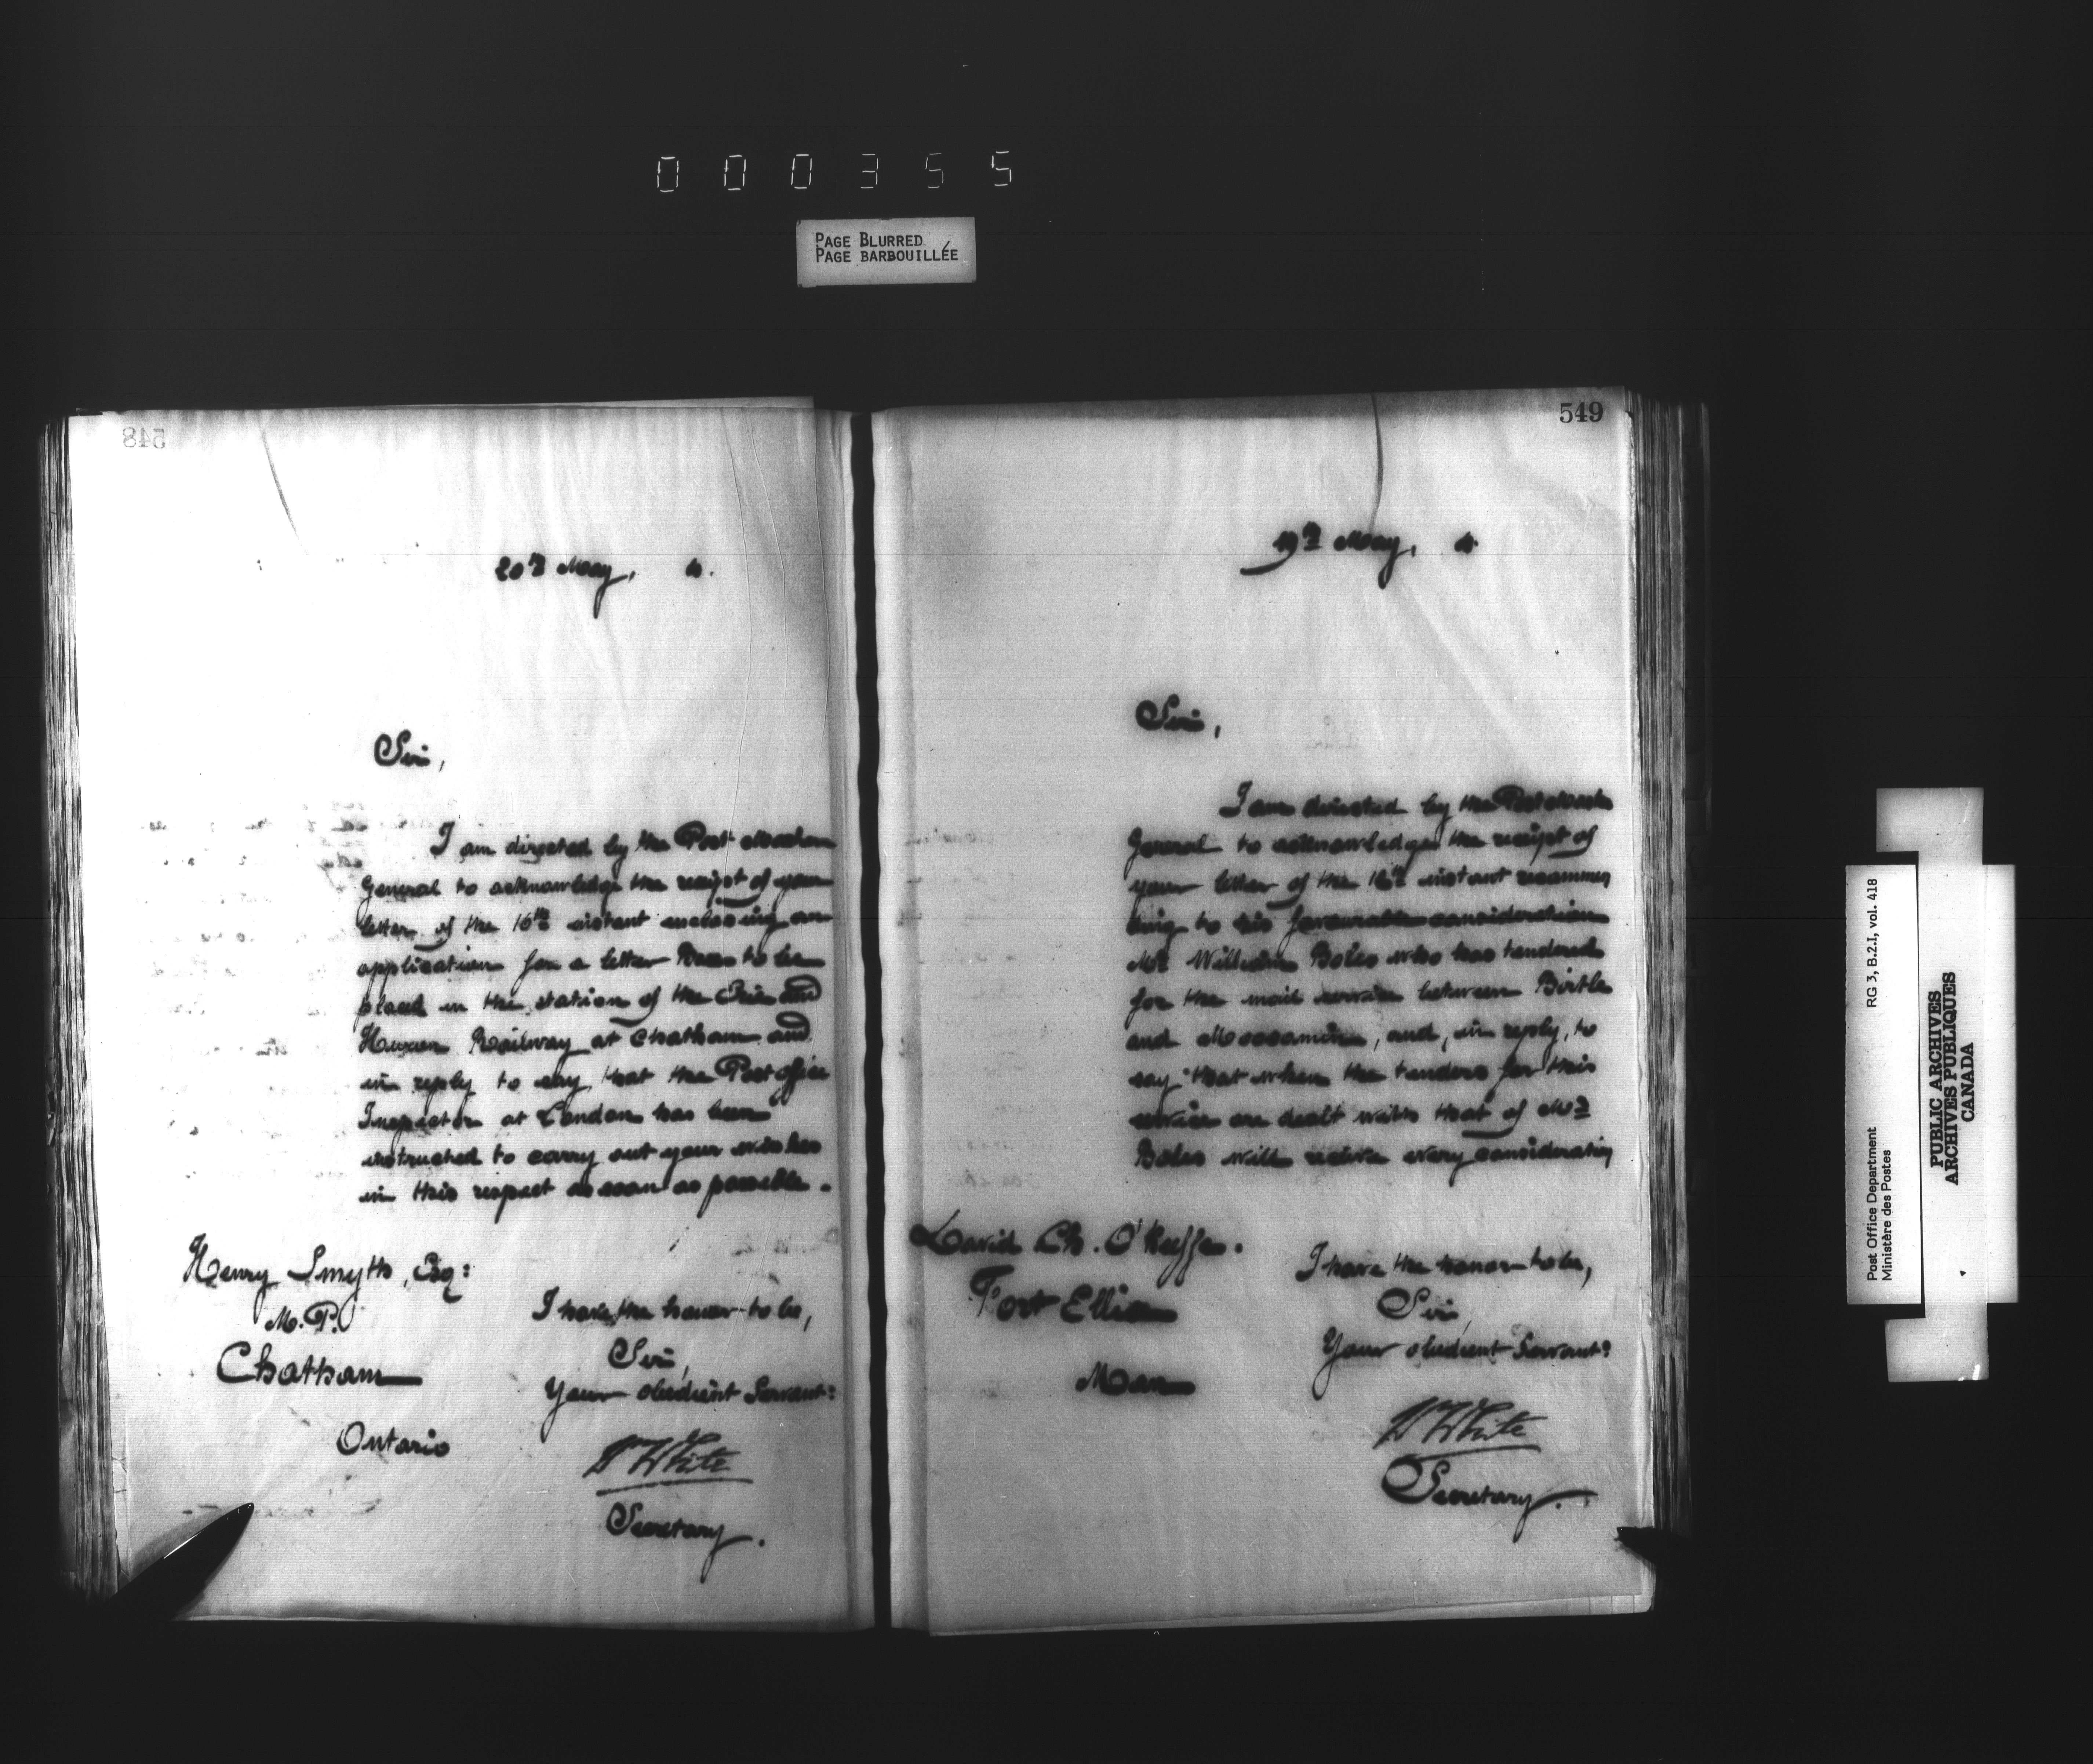 000355
PAGE BLURRED
PAGE BARBOUILLÉE
548
20th May, 4.
Sir,
I am directed by the Post Master
General to acknowledge the receipt of your
letter of the 16th instant enclosing an
application for a letter Box to be
placed in the station of the Erie and
Huron Railway at Chatham and
in reply to say that the Post office
Inspector at London has been
instructed to carry out your wishes
in this respect as soon as possible.
Henry Smyth, Esq:
M.P.
Chatham
Ontario
I have the honor to be,
Sir,
Your obedient Servant:
W White
Secretary.
549
19th May, 4
Sir,
I am directed by the Post Master
General to acknowledge the receipt of
your letter of the 12th instant recommen
ding to his favourable consideration
Mr William Boles who has tendered
for the mail service between Birtle
and Moosomin, and, in reply, to
say that when the tenders for this
service are dealt with that of Mr
Boles will receive every consideration
David Ch. O'Keeffe.
Fort Ellice
Man
I have the honor to be,
Sir,
Your obedient Servant:
W White
Secretary.
Post Office Department
Ministère des Postes
RG 3, B.2.I, vol. 418
PUBLIC ARCHIVES
ARCHIVES PUBLIQUES
CANADA